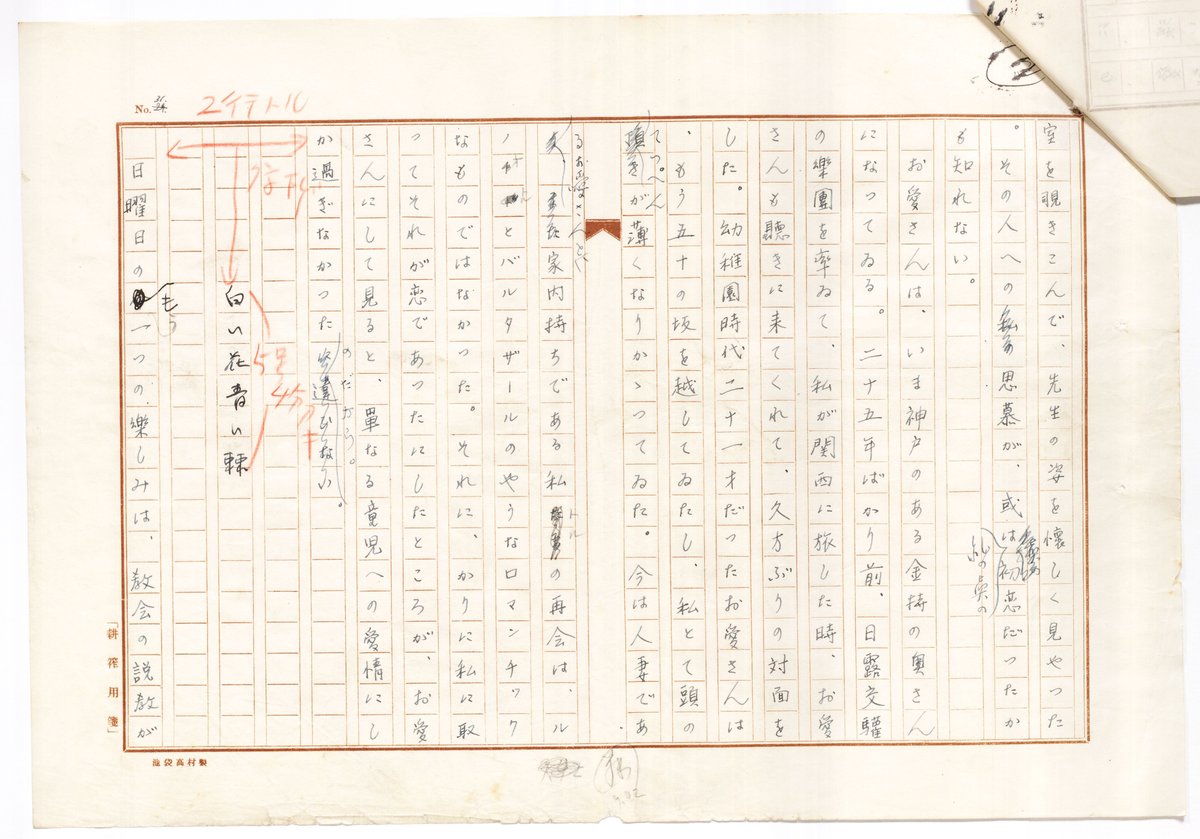 室を覗きこんで、先生の姿を懐しく見やつた
。その人への思慕が、或は初恋だつたか
私の真の
も知れない。
お愛さんは、いま神戸のある金持の奥さん
になつてゐる。二十五年ばかり前、日露交驩
の樂團を率ゐて、私が関西に旅した時、お愛
さんも聴きに来てくれて、久方ぶりの対面を
した。幼稚園時代二十一才だつたお愛さんは
、もう五十の坂を越してゐたし、私とて頭の
てつぺん
が薄くなりかゝつてゐた。今は人妻であ
るお愛さんと、
家内持ちである私
トル
の再会は、ル
ノオトルとバルタザールのやうなロマンチツク
なものではなかつた。それに、かりに私に取
つてそれが恋であつたにしたところが、お愛
さんにして見ると、單なる童児への愛情にし
か過ぎなかつた
のだから。
白い花青い棘
日曜日の
も
う
一つの樂しみは、教会の説教が
No. 31.
2イテトル
5号
4分
12
「耕筰用箋」
池袋髙村製